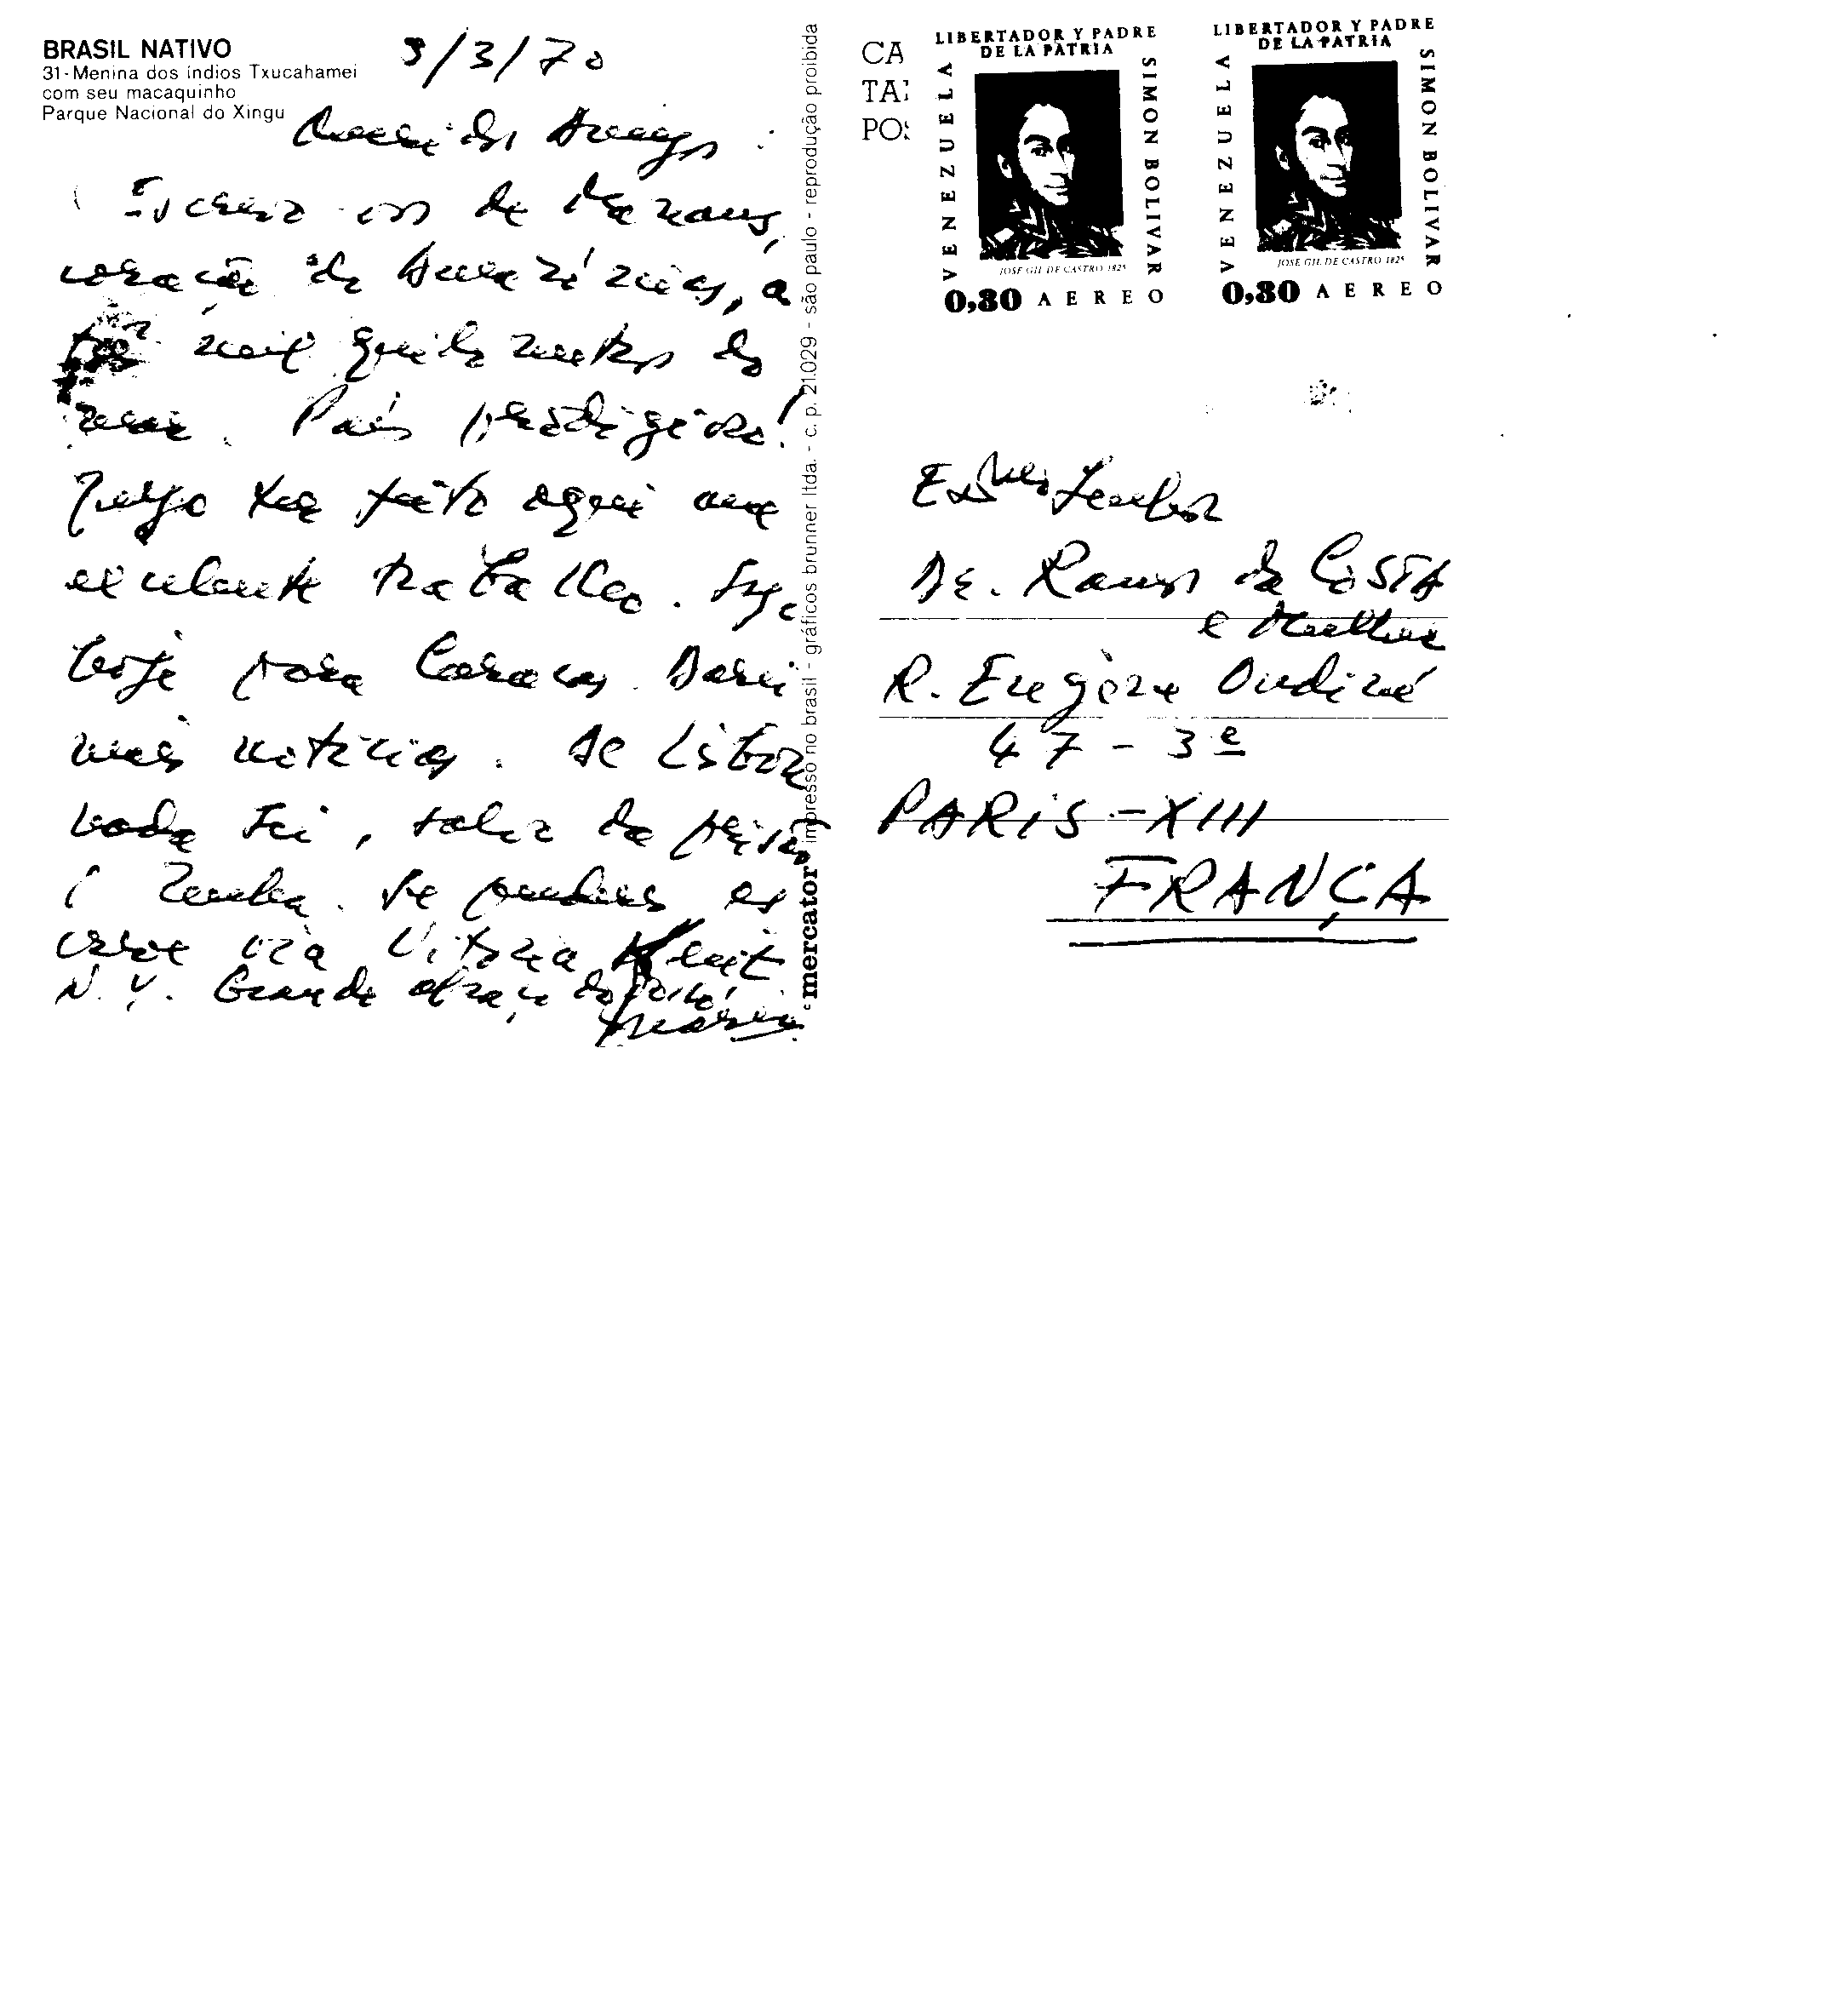 BRASIL NATIVO
31-Menina dos índios Txucahamei
com seu macaquinho
Parque Nacional do Xingu
3/3/70
Queridos Amigos:
Escrevo-vos de Manaus,
coração do Amazónia, a
mil quilómetros do
mar. País prodigioso!
Julgo ter feito aqui um
excelente trabalho. Sigo
hoje para Caracas. Darei
mais notícias. De Lisboa
nada sei, salvo da prisão
Se puderes es
creve via Vitória
N.Y. Grande abraço do
Mário
impresso no brasil - gráficos brunner ltda. - c. p. 21.029 - são paulo - reprodução proibida
mercator
CA
TA
POS
LIBERTADOR Y PADRE
DE LA PATRIA
VENEZUELA
SIMON BOLIVAR
JOSE GIL DE CASTRO 1825
0,80 AEREO
LIBERTADOR Y PADRE
DE LA PATRIA
VENEZUELA
SIMON BOLIVAR
JOSE GIL DE CASTRO 1825
0,80 AEREO
Exmo Senhor
Dr. Ramos da Costa
e Mulher
R. Eugène Oudiné
47 - 3e
PARIS - XIII
FRANÇA